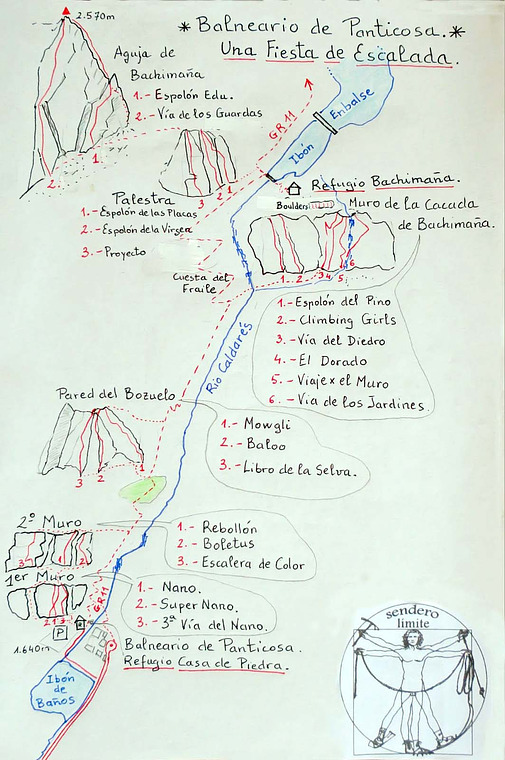 * Balneario de Panticosa. *
Una Fiesta de Escalada.
2.570m
Aguja de
Bachimaña
1.- Espolón Edu.
2.- Vía de los Guardas
2
1
GR 11
Embalse
Ibón
3 2 1
Palestra
1.- Espolón de las Placas
2.- Espolón de la Virgen
3.- Proyecto
Refugio Bachimaña.
Boulders
Muro de la Cascada
de Bachimaña.
1 2 3 4 5 6
Cuesta del
Fraile
1.- Espolón del Pino
2.- Climbing Girls
3.- Vía del Diedro
4.- El Dorado
5.- Viaje x el Muro
6.- Vía de los Jardines.
Río Caldarés
Pared del Bozuelo
1.- Mowgli
2.- Baloo
3.- Libro de la Selva.
3 2 1
2º Muro
1.- Rebollón
2.- Boletus
3.- Escalera de Color
3 1 2
1er Muro
1.- Nano.
2.- Super Nano.
3.- 3ª Vía del Nano.
2 1 3
GR 11
P
1.640m
Balneario de Panticosa.
Refugio Casa de Piedra.
Ibón
de
Baños
sendero
limite